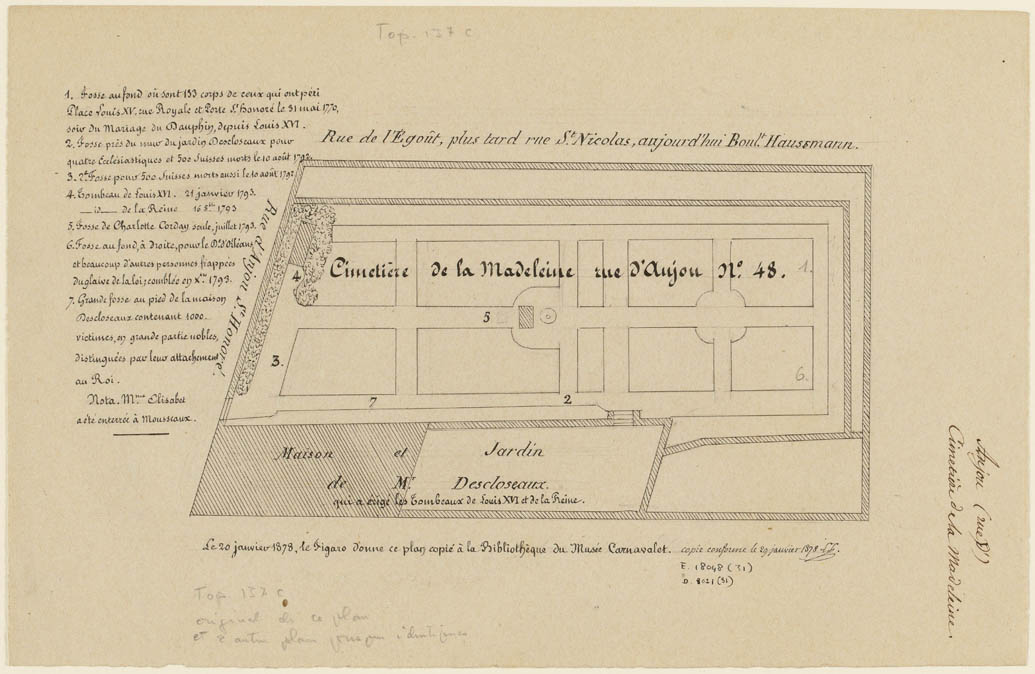 Top. 137 c
1. Fosse au fond où sont 133 corps de ceux qui ont péri
Place Louis XV, rue Royale et Porte St. Honoré le 31 mai 1770,
soir du Mariage du Dauphin, depuis Louis XVI.
2. Fosse près du mur du jardin Descloseaux pour
quatre Ecclésiastiques et 500 Suisses morts le 10 août 1792.
3. 2e. Fosse pour 500 Suisses morts aussi le 10 août 1792
4. Tombeau de Louis XVI. 21 janvier 1793.
— id — de la Reine 16 8bre 1793
5. Fosse de Charlotte Corday seule, juillet 1793.
6. Fosse au fond, à droite, pour le D. d'Orléans
et beaucoup d'autres personnes frappées
du glaive de la loi; comblée en Xbre 1793.
7. Grande fosse au pied de la maison
Descloseaux contenant 1000.
victimes, en grande partie nobles,
distinguées par leur attachement
au Roi.
Nota. Mme Elisabet
a été enterrée à Mousseaux.
Rue de l'Égoût, plus tard rue St. Nicolas, aujourd'hui Boult. Hausemann.
Rue d'Anjou St. Honoré.
Cimetière de la Madeleine rue d'Anjou No. 48.
1.
4
5
3.
6.
7
2
Maison et Jardin
de Mr. Descloseaux.
qui a érigé les Tombeaux de Louis XVI et de la Reine.
Le 20 janvier 1878, le Figaro donne ce plan copié à la Bibliothèque du Musée Carnavalet. copie conforme le 29 janvier 1878
E. 18048 (31)
D. 8021 (31)
Anjou (rue d')
Cimetière de la Madeleine.
Top. 137 c
original de ce plan
et 2 autres plans presque identiques